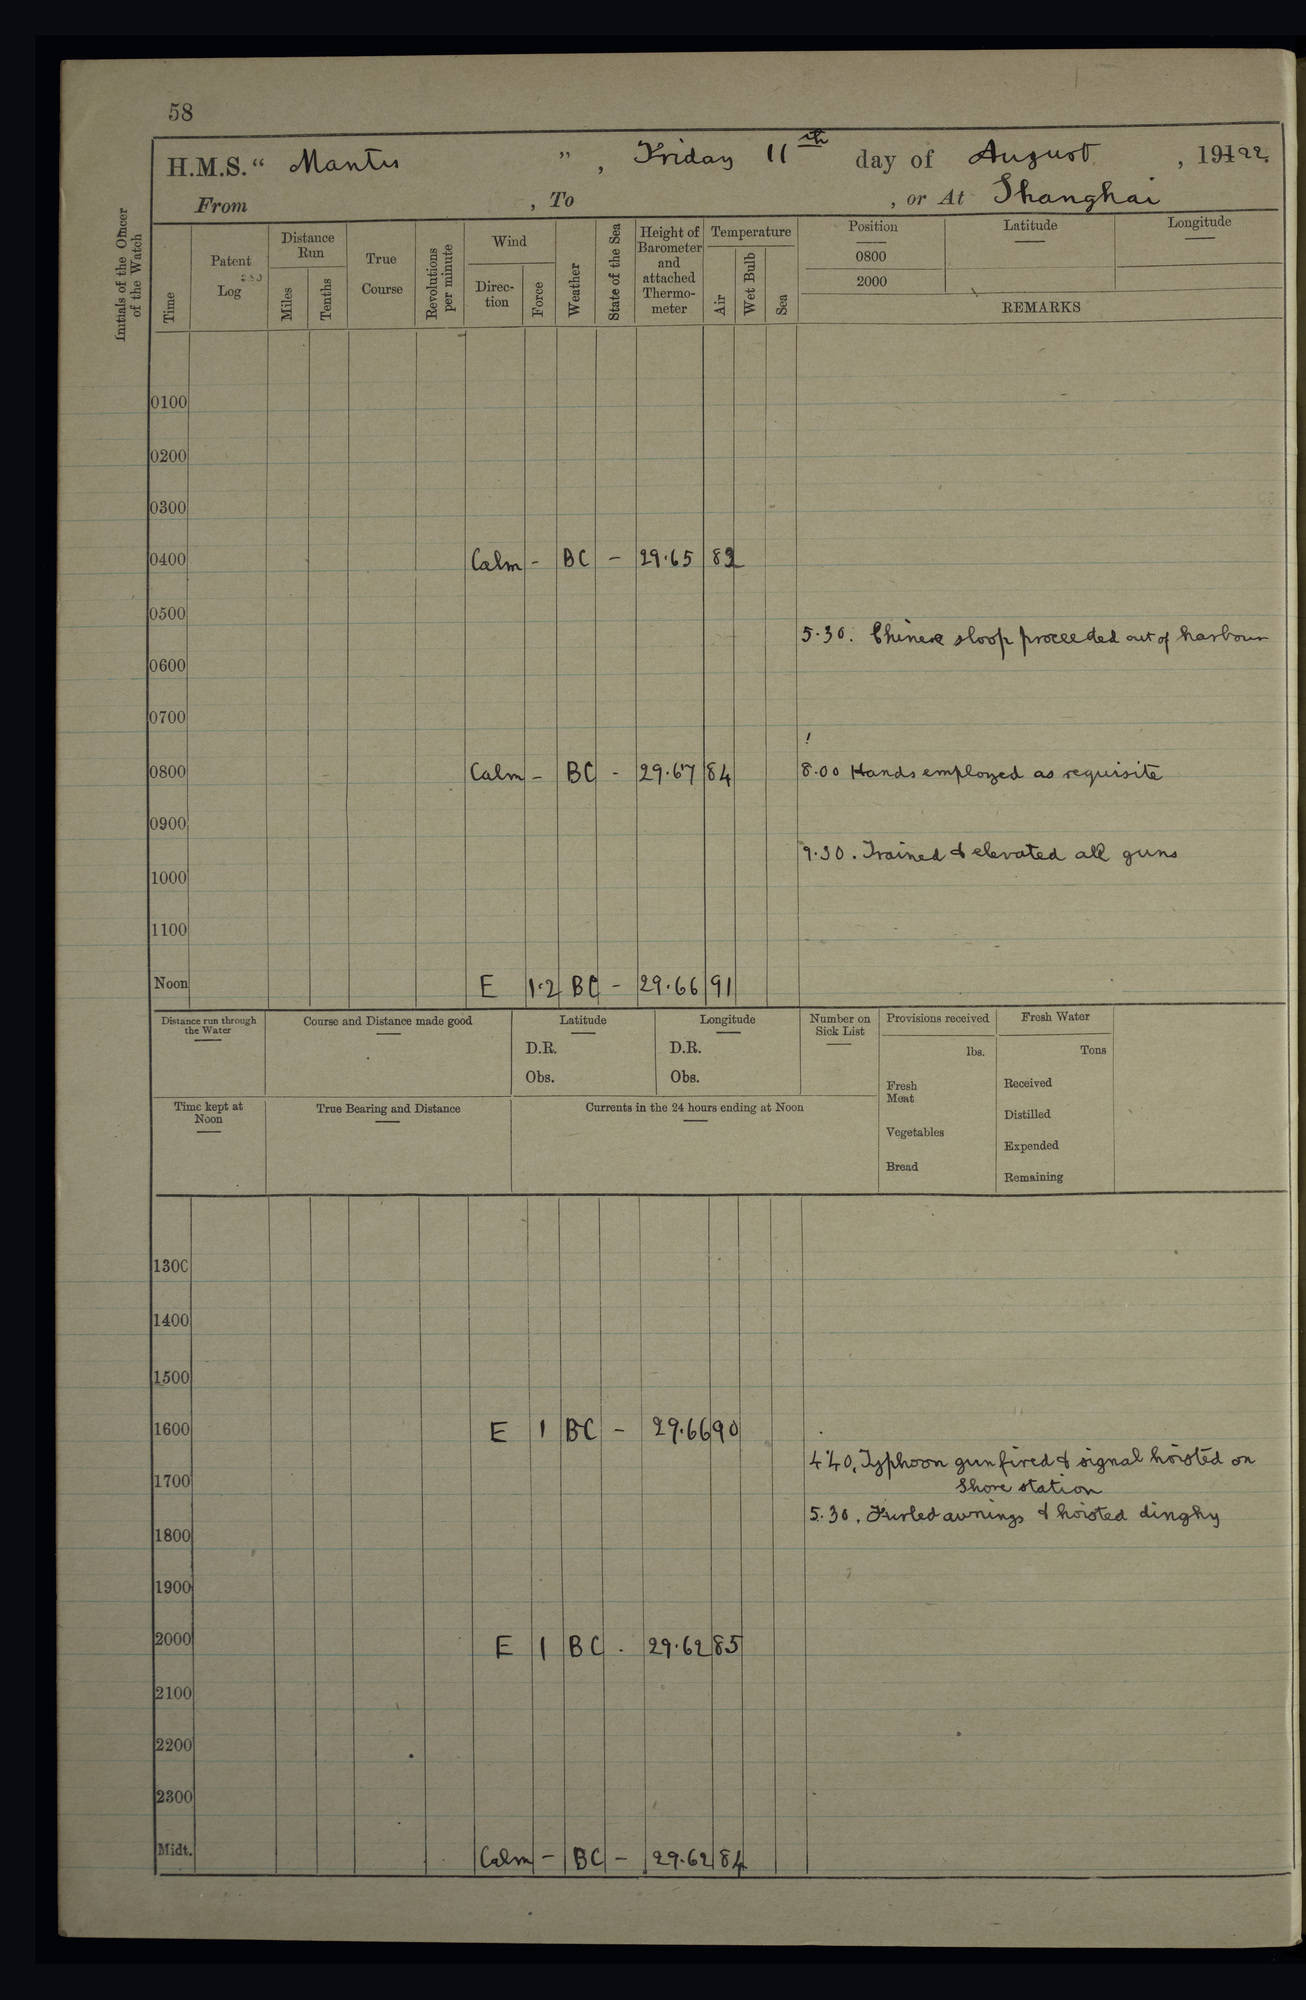 58
H.M.S. “ Mantis ” , Friday 11th day of August , 19122.
From , To , or At Shanghai
Initials of the Officer of the Watch
Time
Patent Log
Distance Run
Miles
Tenths
True Course
Revolutions per minute
Wind
Direc-tion
Force
Weather
State of the Sea
Height of Barometer and attached Thermo-meter
Temperature
Air
Wet Bulb
Sea
Position
0800
2000
Latitude
Longitude
REMARKS
0100
0200
0300
0400 Calm - BC - 29.65 82
0500
5.30. Chinese sloop proceeded out of harbour
0600
0700
0800 Calm - BC - 29.67 84 8.00 Hands employed as requisite
0900
9.30. Trained & elevated all guns
1000
1100
Noon E 1.2 BC - 29.66 91
Distance run through the Water
Course and Distance made good
Latitude
D.R.
Obs.
Longitude
D.R.
Obs.
Number on Sick List
Provisions received
lbs.
Fresh Meat
Vegetables
Bread
Fresh Water
Tons
Received
Distilled
Expended
Remaining
Time kept at Noon
True Bearing and Distance
Currents in the 24 hours ending at Noon
1300
1400
1500
1600 E 1 BC - 29.66 90
4.40. Typhoon gun fired & signal hoisted on
Shore station
1700
5.30. Furled awnings & hoisted dinghy
1800
1900
2000 E 1 BC . 29.62 85
2100
2200
2300
Midt. Calm - BC - 29.62 84